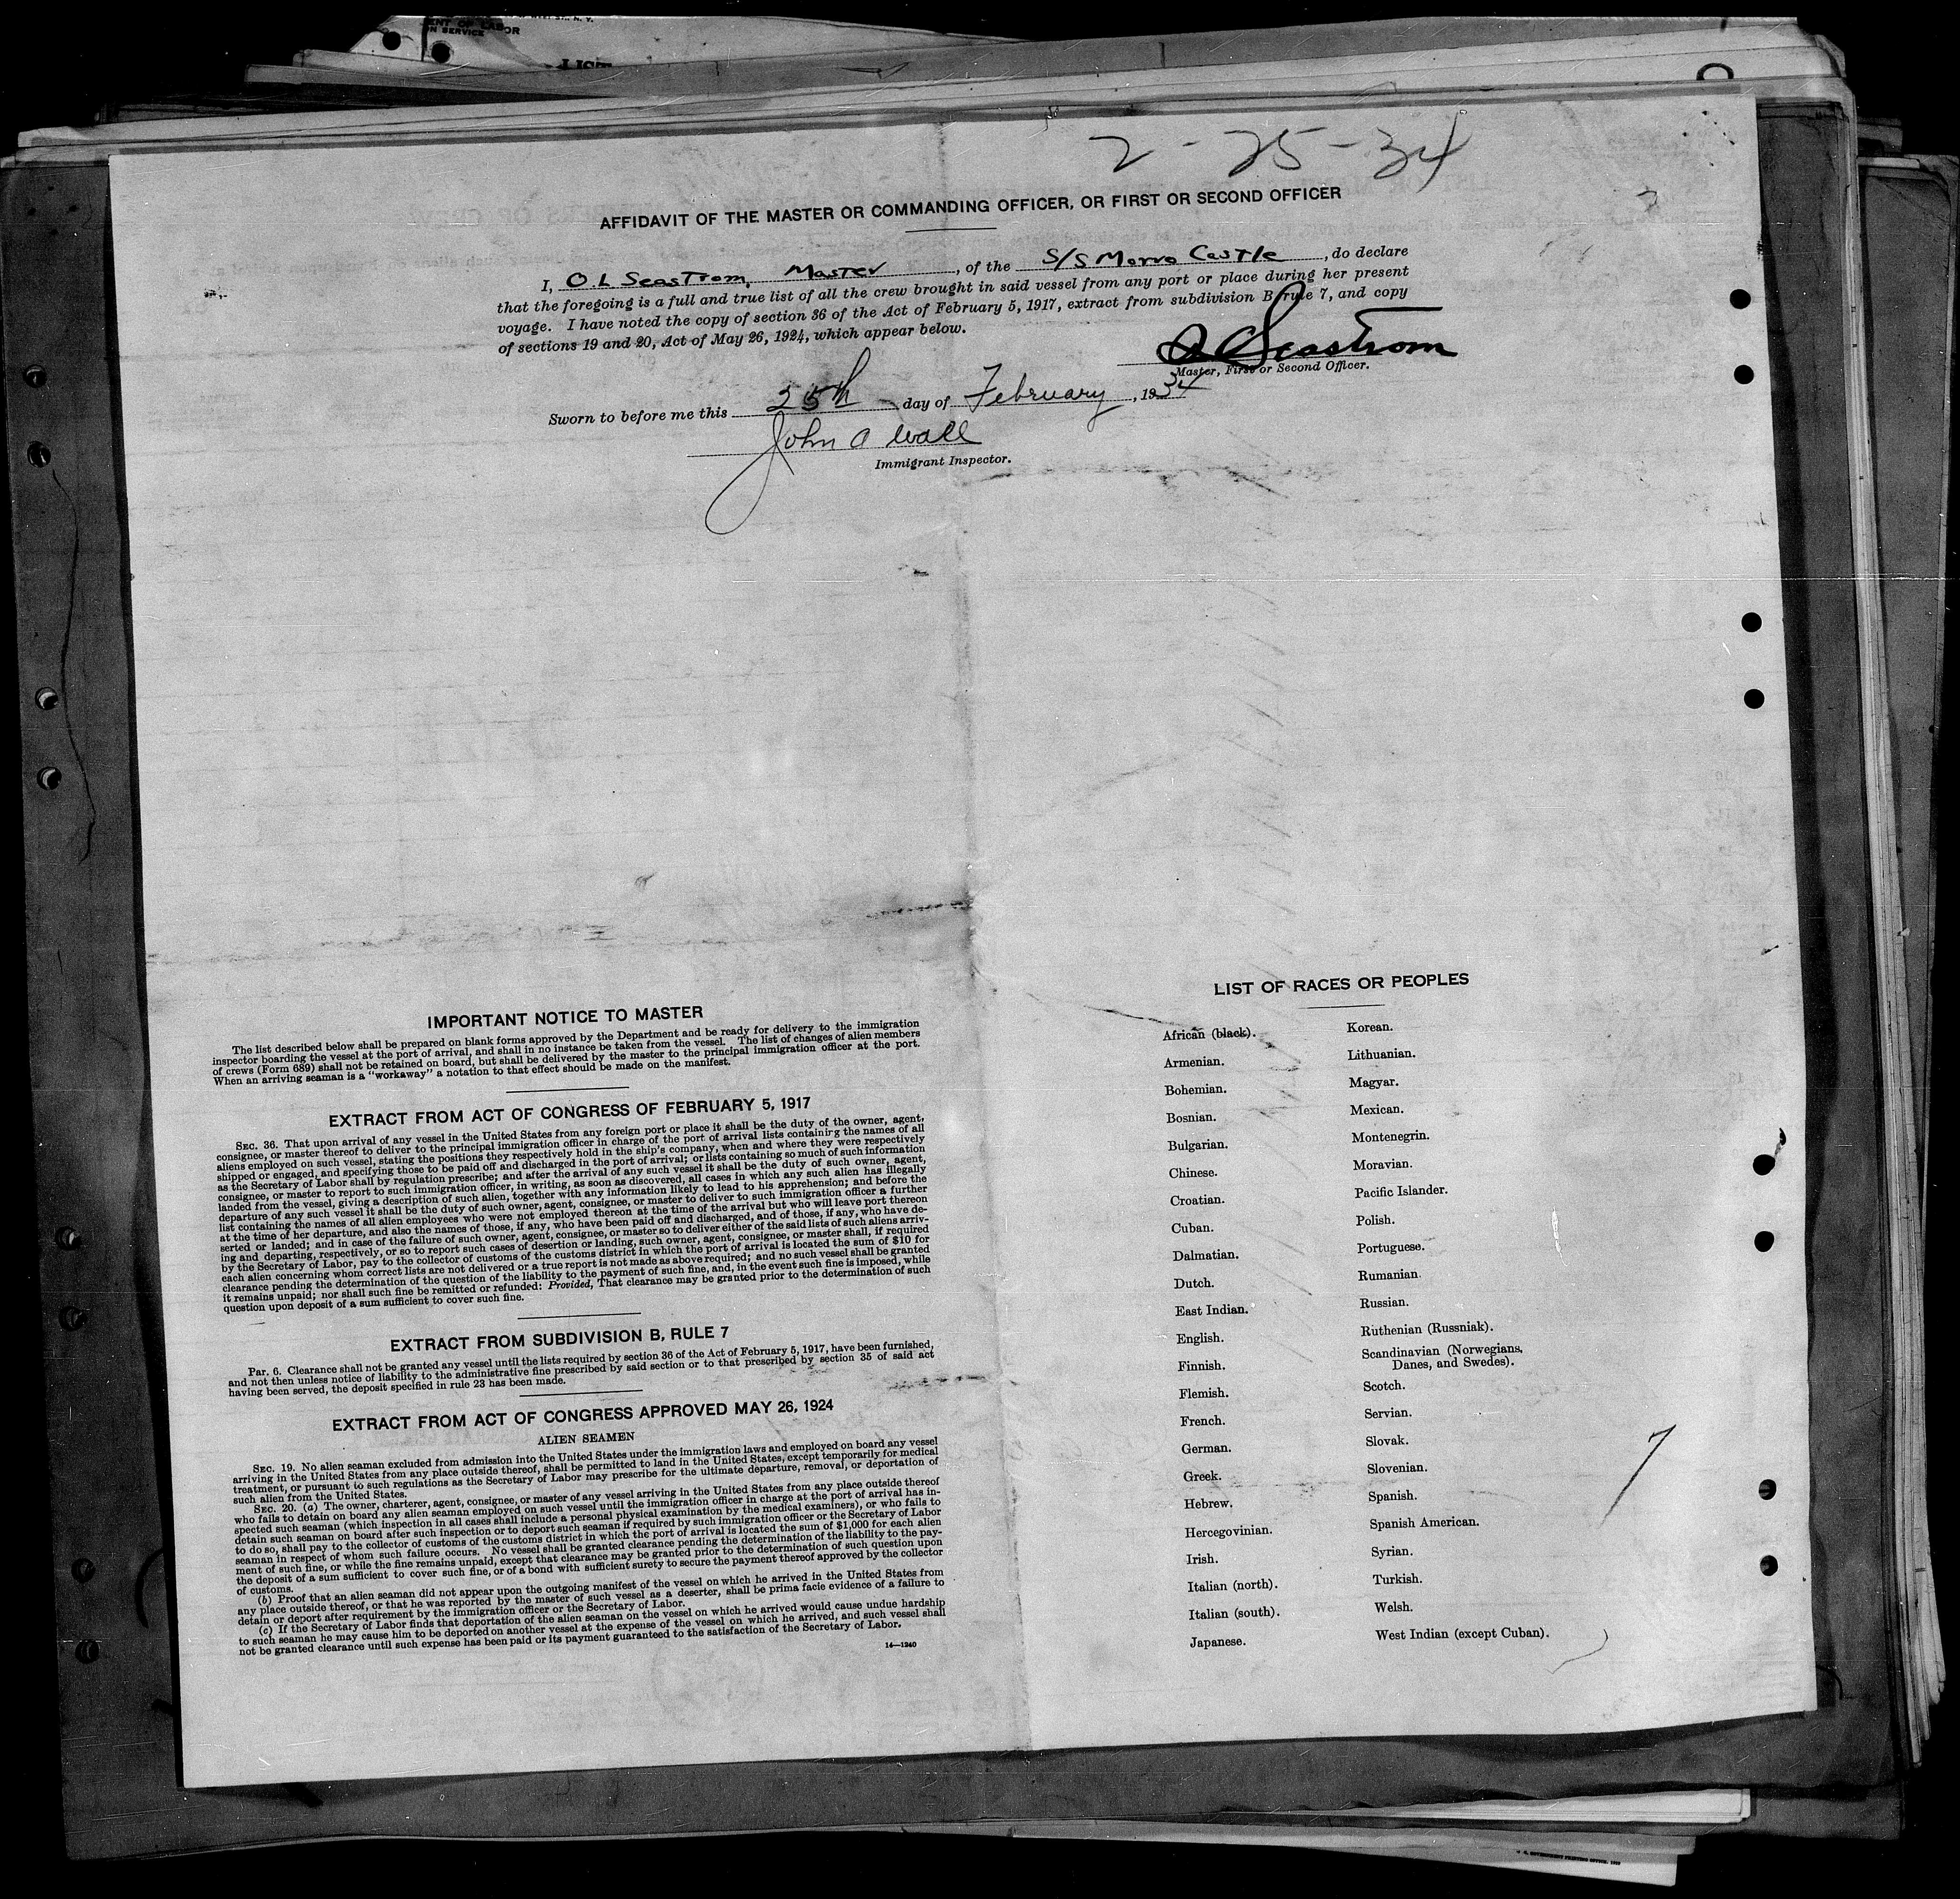 LABOR
N SERVICE
LIST
2-25-34
AFFIDAVIT OF THE MASTER OR COMMANDING OFFICER, OR FIRST OR SECOND OFFICER
I, O. L Seastrom, Master, of the S/S Morro Castle, do declare
that the foregoing is a full and true list of all the crew brought in said vessel from any port or place during her present
voyage. I have noted the copy of section 36 of the Act of February 5, 1917, extract from subdivision B rule 7, and copy
of sections 19 and 20, Act of May 26, 1924, which appear below.
O L Seastrom
Master, First or Second Officer.
Sworn to before me this 25th day of February, 1934
John A Wall
Immigrant Inspector.
IMPORTANT NOTICE TO MASTER
The list described below shall be prepared on blank forms approved by the Department and be ready for delivery to the immigration
inspector boarding the vessel at the port of arrival, and shall in no instance be taken from the vessel. The list of changes of alien members
of crews (Form 689) shall not be retained on board, but shall be delivered by the master to the principal immigration officer at the port.
When an arriving seaman is a "workaway" a notation to that effect should be made on the manifest.
EXTRACT FROM ACT OF CONGRESS OF FEBRUARY 5, 1917
SEC. 36. That upon arrival of any vessel in the United States from any foreign port or place it shall be the duty of the owner, agent,
consignee, or master thereof to deliver to the principal immigration officer in charge of the port of arrival lists containing the names of all
aliens employed on such vessel, stating the positions they respectively hold in the ship's company, when and where they were respectively
shipped or engaged, and specifying those to be paid off and discharged in the port of arrival; or lists containing so much of such information
as the Secretary of Labor shall by regulation prescribe; and after the arrival of any such vessel it shall be the duty of such owner, agent,
consignee, or master to report to such immigration officer, in writing, as soon as discovered, all cases in which any such alien has illegally
landed from the vessel, giving a description of such alien, together with any information likely to lead to his apprehension; and before the
departure of any such vessel it shall be the duty of such owner, agent, consignee, or master to deliver to such immigration officer a further
list containing the names of all alien employees who were not employed thereon at the time of the arrival but who will leave port thereon
at the time of her departure, and also the names of those, if any, who have been paid off and discharged, and of those, if any, who have de-
serted or landed; and in case of the failure of such owner, agent, consignee, or master so to deliver either of the said lists of such aliens arriv-
ing and departing, respectively, or so to report such cases of desertion or landing, such owner, agent, consignee, or master shall, if required
by the Secretary of Labor, pay to the collector of customs of the customs district in which the port of arrival is located the sum of $10 for
each alien concerning whom correct lists are not delivered or a true report is not made as above required; and no such vessel shall be granted
clearance pending the determination of the question of the liability to the payment of such fine, and, in the event such fine is imposed, while
it remains unpaid; nor shall such fine be remitted or refunded: Provided, That clearance may be granted prior to the determination of such
question upon deposit of a sum sufficient to cover such fine.
EXTRACT FROM SUBDIVISION B, RULE 7
Par. 6. Clearance shall not be granted any vessel until the lists required by section 36 of the Act of February 5, 1917, have been furnished,
and not then unless notice of liability to the administrative fine prescribed by said section or to that prescribed by section 35 of said act
having been served, the deposit specified in rule 23 has been made.
EXTRACT FROM ACT OF CONGRESS APPROVED MAY 26, 1924
ALIEN SEAMEN
SEC. 19. No alien seaman excluded from admission into the United States under the immigration laws and employed on board any vessel
arriving in the United States from any place outside thereof, shall be permitted to land in the United States, except temporarily for medical
treatment, or pursuant to such regulations as the Secretary of Labor may prescribe for the ultimate departure, removal, or deportation of
such alien from the United States.
SEC. 20. (a) The owner, charterer, agent, consignee, or master of any vessel arriving in the United States from any place outside thereof
who fails to detain on board any alien seaman employed on such vessel until the immigration officer in charge at the port of arrival has in-
spected such seaman (which inspection in all cases shall include a personal physical examination by the medical examiners), or who fails to
detain such seaman on board after such inspection or to deport such seaman if required by such immigration officer or the Secretary of Labor
to do so, shall pay to the collector of customs of the customs district in which the port of arrival is located the sum of $1,000 for each alien
seaman in respect of whom such failure occurs. No vessel shall be granted clearance pending the determination of the liability to the pay-
ment of such fine, or while the fine remains unpaid, except that clearance may be granted prior to the determination of such question upon
the deposit of a sum sufficient to cover such fine, or of a bond with sufficient surety to secure the payment thereof approved by the collector
of customs.
(b) Proof that an alien seaman did not appear upon the outgoing manifest of the vessel on which he arrived in the United States from
any place outside thereof, or that he was reported by the master of such vessel as a deserter, shall be prima facie evidence of a failure to
detain or deport after requirement by the immigration officer or the Secretary of Labor.
(c) If the Secretary of Labor finds that deportation of the alien seaman on the vessel on which he arrived would cause undue hardship
to such seaman he may cause him to be deported on another vessel at the expense of the vessel on which he arrived, and such vessel shall
not be granted clearance until such expense has been paid or its payment guaranteed to the satisfaction of the Secretary of Labor.
14—1240
LIST OF RACES OR PEOPLES
African (black).
Armenian.
Bohemian.
Bosnian.
Bulgarian.
Chinese.
Croatian.
Cuban.
Dalmatian.
Dutch.
East Indian.
English.
Finnish.
Flemish.
French.
German.
Greek.
Hebrew.
Hercegovinian.
Irish.
Italian (north).
Italian (south).
Japanese.
Korean.
Lithuanian.
Magyar.
Mexican.
Montenegrin.
Moravian.
Pacific Islander.
Polish.
Portuguese.
Rumanian.
Russian.
Ruthenian (Russniak).
Scandinavian (Norwegians,
Danes, and Swedes).
Scotch.
Servian.
Slovak.
Slovenian.
Spanish.
Spanish American.
Syrian.
Turkish.
Welsh.
West Indian (except Cuban).
7